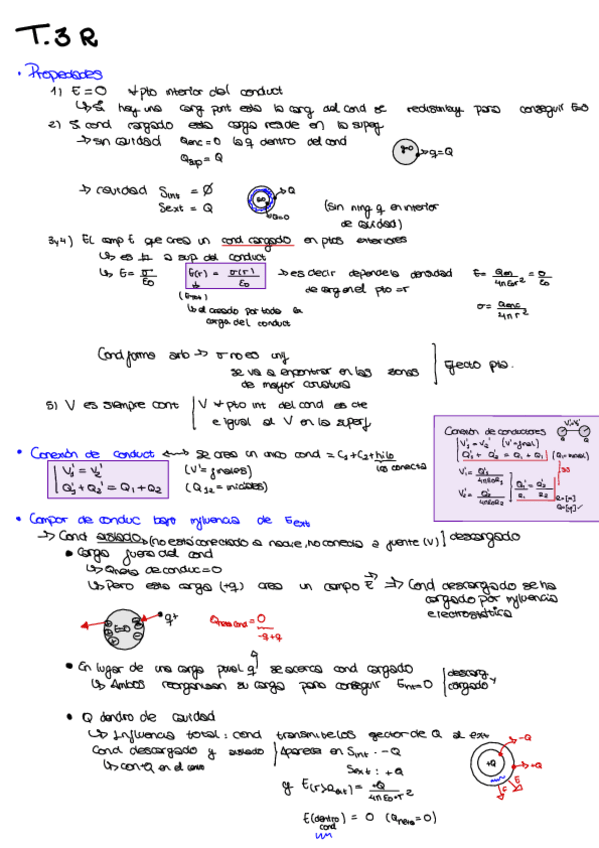 T.3 R
• Propiedades
1) E=0 ∀ pto interior del conduct
↳ Si hay una carg punt esta la carg del cond se redistribuye para conseguir E=0
2) Si cond cargado esta carga reside en la superf
→ sin cavidad Qenc=0 la q dentro del cond
Qsup = Q
q=0 → q=Q
→ cavidad Sint = Ø
Sext = Q
E=0 Q
Q=0
(sin ning q en interior de cavidad)
3y4) El camp E que crea un cond cargado en ptos exteriores
↳ es ⊥ a sup del conduct
↳ E = σ/ε0
E(r) = σ(r)/ε0
→ es decir depende la densidad de carg en el pto = r
E = Qen/4πε0r² = σ/ε0
σ = Qenc/4πr²
(Eext)
↳ el creado por toda la carga del conduct
Cond forma arb → σ no es unif
se va a encontrar en las zonas de mayor curvatura
Efecto pta.
5) V es siempre cont | V ∀ pto int del cond es cte
e igual al V en la superf
Conexión de conductores
V1' = V2' (V' = final)
Q1' + Q2' = Q1 + Q2 (Q1 = inicial)
V1' = Q1'/4πε0R1
V2' = Q2'/4πε0R2
Q1'/R1 = Q2'/R2
R = [m]
V1'=V2'
Q Q
• Conexión de conduct ⟷ se crea un unico cond = C1 + C2 + hilo
lo conecta
V1' = V2' (V' = finales)
Q1' + Q2' = Q1 + Q2 (Q1,2 = iniciales)
• Compor de conduc bajo influencia de Eext
→ Cond aislado → (no está conectado a nadie, no conecta a fuente (V)) descargado
• Carga fuera del cond
↳ Qneta de conduc = 0
↳ Pero esta carga (+q) crea un campo E ⇒ Cond descargado se ha cargado por influencia electrostática
E=0
q+
Qneta cond = 0
-q+q
• En lugar de una carga ptual q se acerca cond cargado
↳ Ambos reorganizan su carga para conseguir Eint = 0 | descarg y cargado
• Q dentro de cavidad
↳ Influencia total: cond transmite los efector de Q al ext
Cond descargado y aislado | Aparece en Sint: -Q
↳ con +Q en el cent
Sext: +Q
y E(r>Rext) = +Q/4πε0·r²
E(dentro cond) = 0 (Qneta=0)
-Q
+Q
+Q
E
E